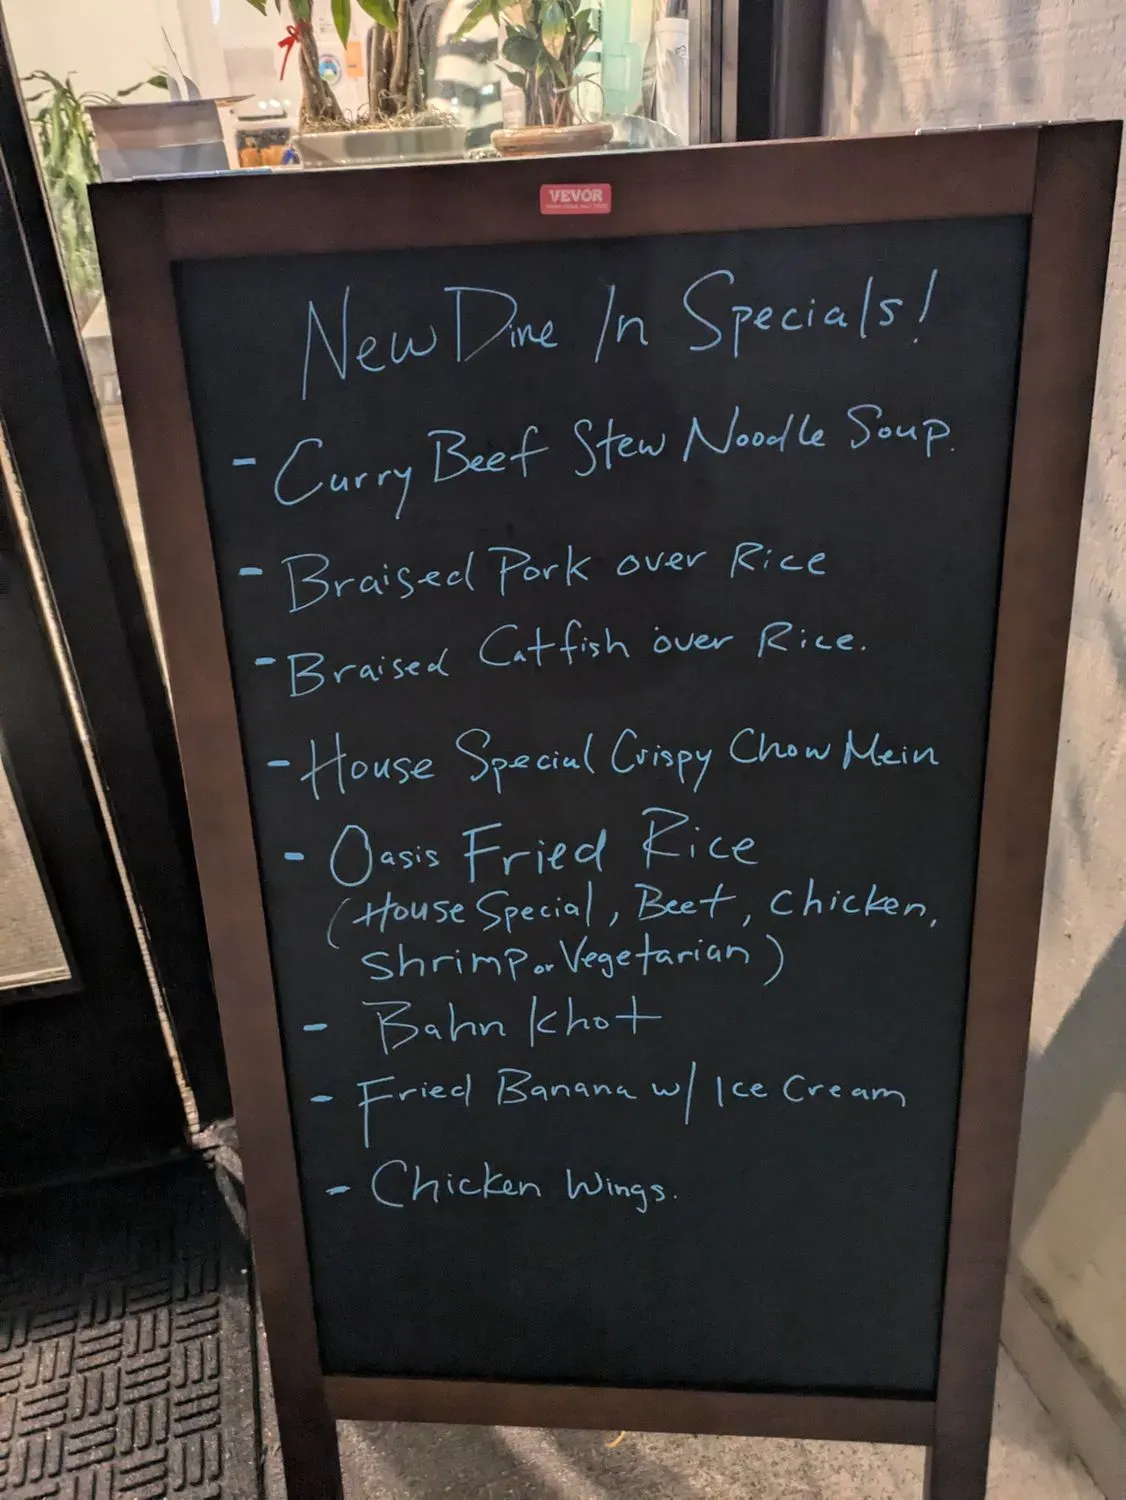 VEVOR
New Dine In Specials!
- Curry Beef Stew Noodle Soup.
- Braised Pork over Rice
- Braised Catfish over Rice.
- House Special Crispy Chow Mein
- Oasis Fried Rice
(House Special, Beef, Chicken,
Shrimp or Vegetarian)
- Bahn Khot
- Fried Banana w/ Ice Cream
- Chicken Wings.